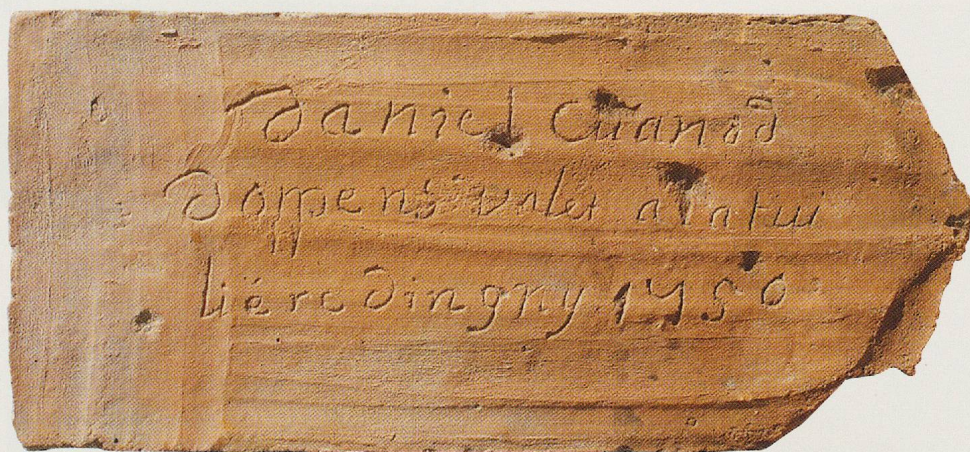 Daniel Cuanod
doppens valet a la tui
liére dingny 1750